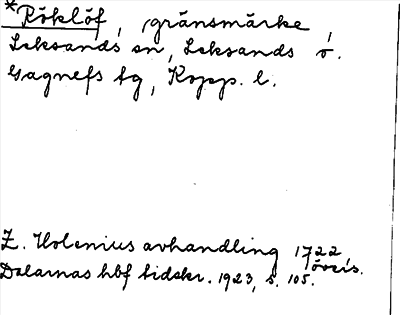 *Röklöf, gränsmärke,
Leksands sn, Leksands o.
Gagnefs tg, Kopp. l.
Z. Holenius avhandling 1722,
övers.
Dalarnas hbf tidskr. 1923, s. 105.